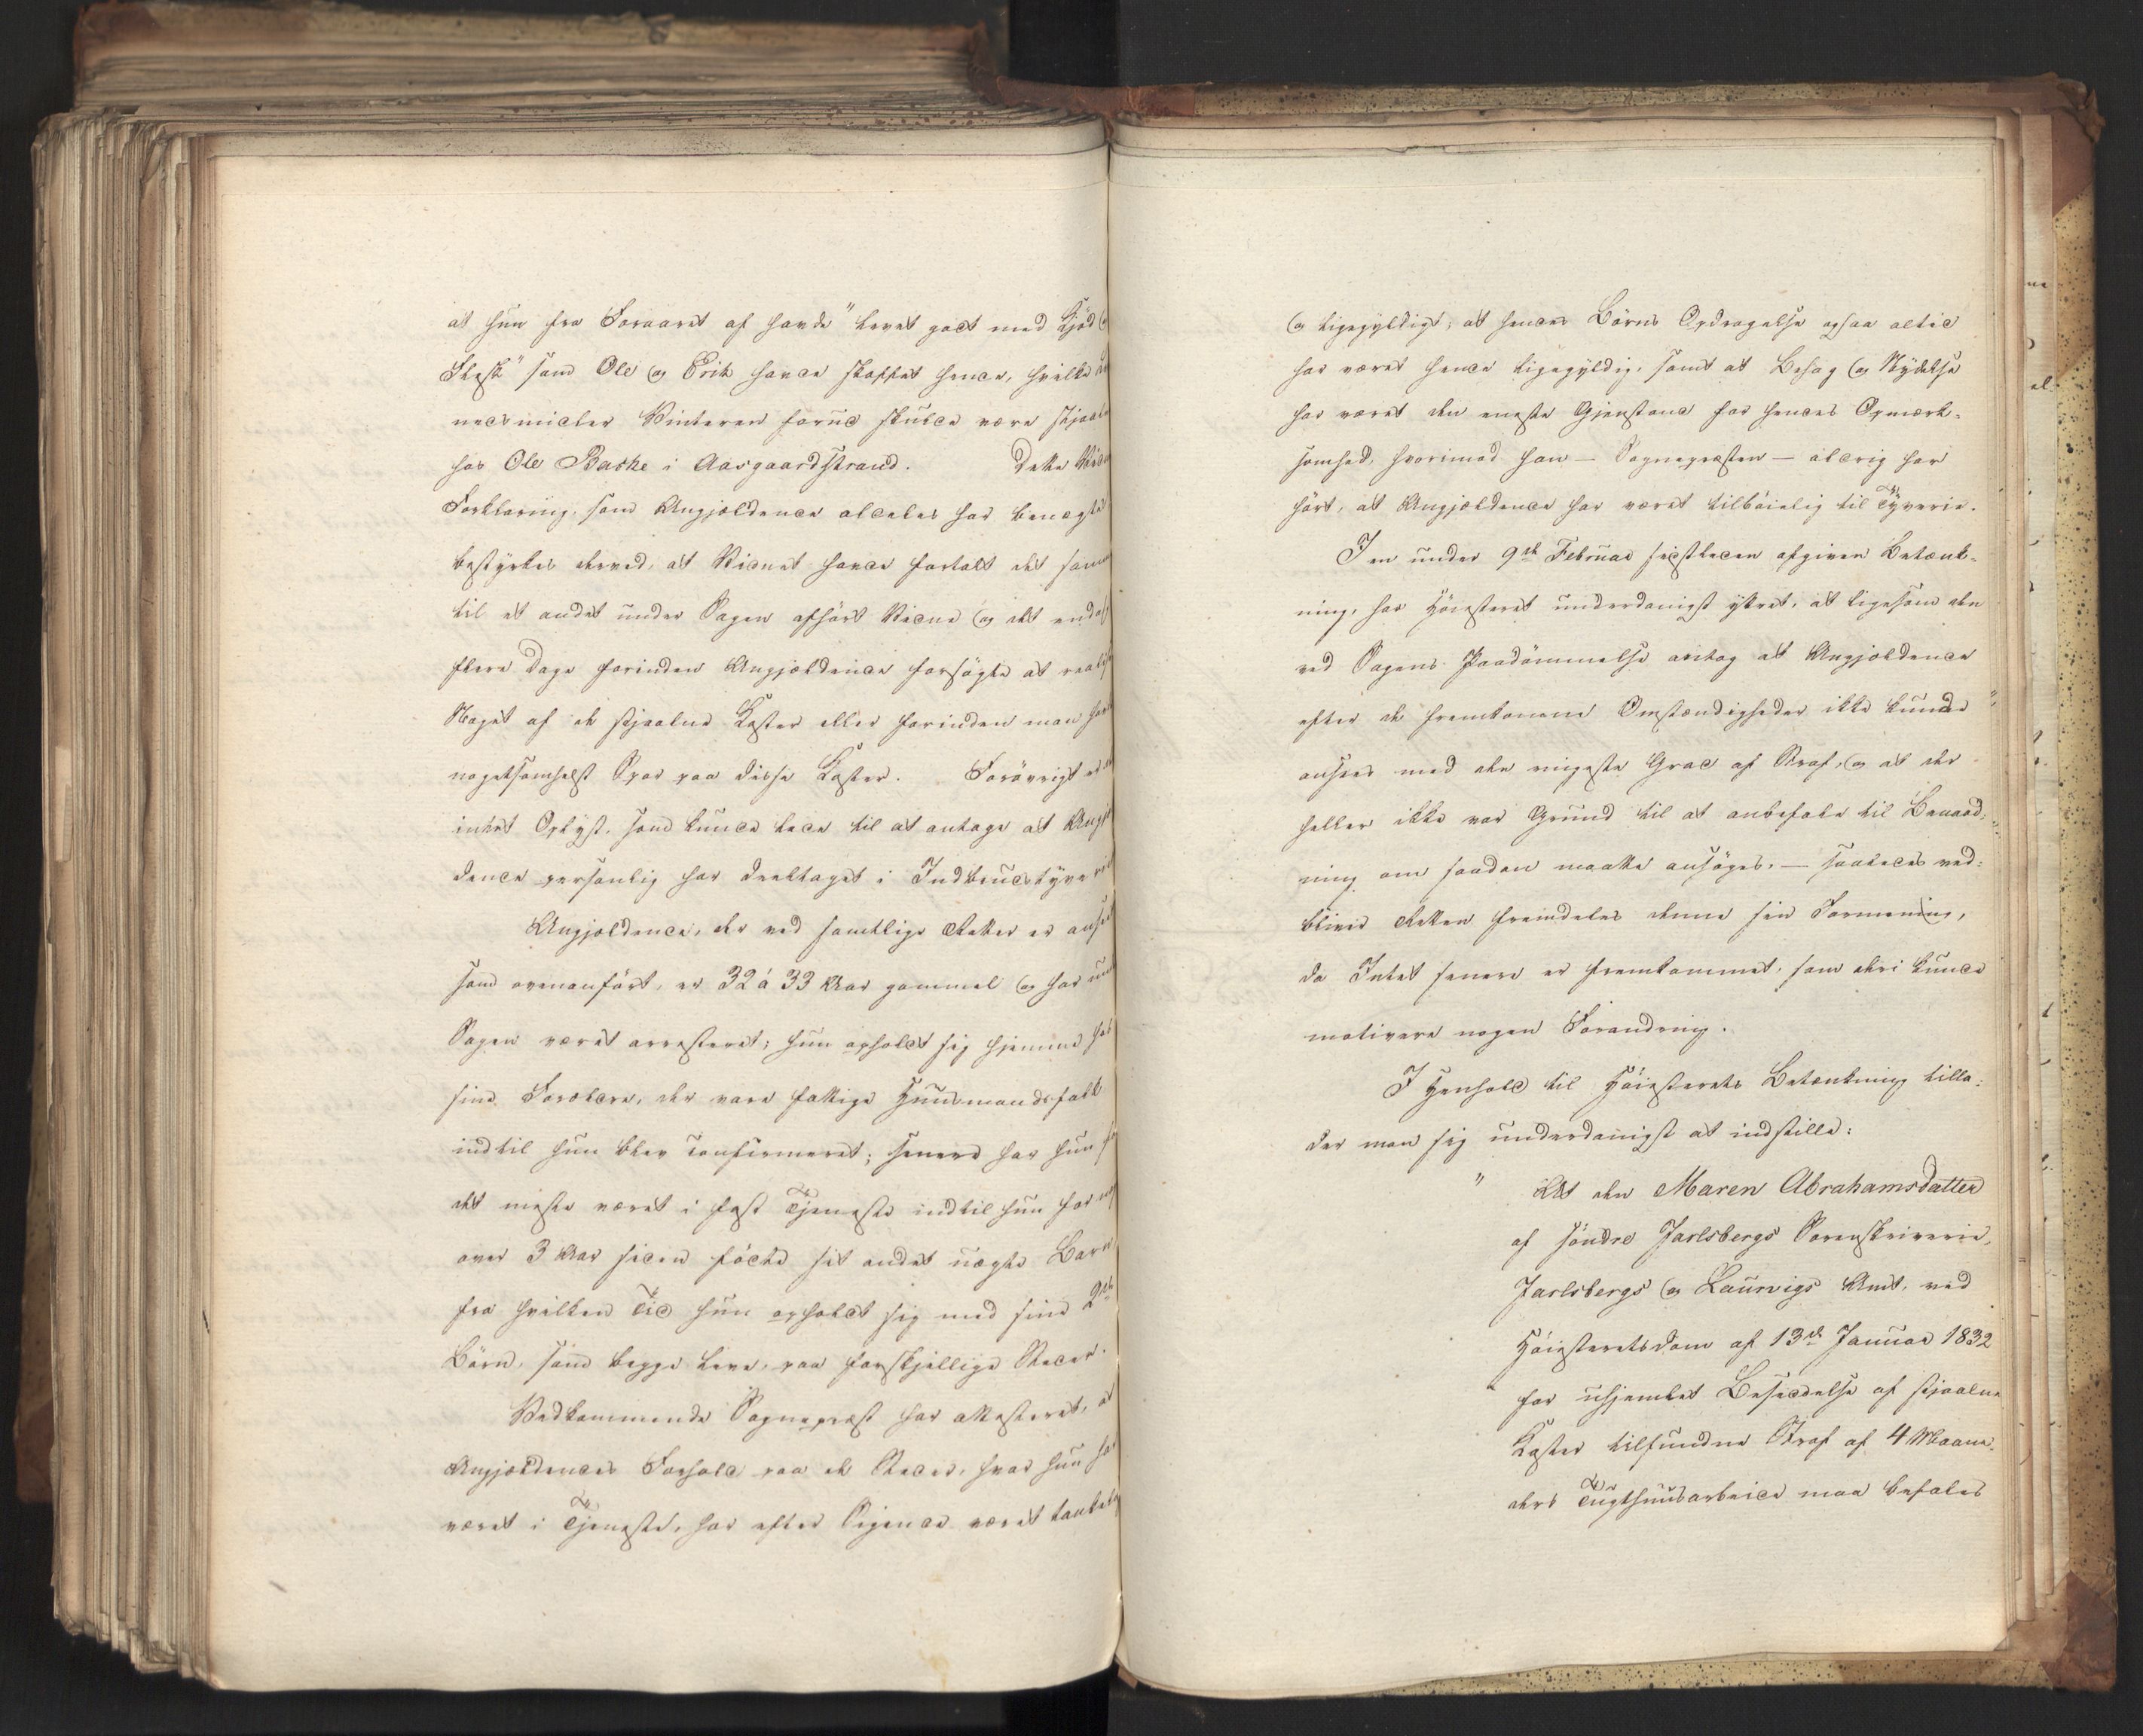 at hun fra Foraaret af havde "levet godt med Kjöd og
Flesk" som Ole og Erik havde skaffet hende, hvilke
nedmidler Vinteren forud skulde være stjaalne
hos Ole Bakke i Aasgaardstrand. Dette Vidnes
Forklaring, som Angjældende aldeles har benægtet
bestyrkes derved, at Vidnet havde fortalt det samme
til et andet under Sagen afhört Vidne og det endog
flere Dage forinden Angjældende forsögte at realisere
Noget af de stjaalne Koster eller forinden man havde
nogetsomhelst Spor paa disse Koster. Forövrigt er
intet Oplyst, som kunde lede til at antage at Angjæl
dende personlig har deeltaget i Indbrudstyveriet
Angjældende, der ved samtlige Retter er anseet
som ovenanfört, er 32 á 33 Aar gammel og har under
Sagen været arresteret; hun opholdt sig hjemme hos
sine Forældre, der vare fattige Huusmandsfolk
indtil hun blev confirmeret; senere har hun for
det meste været i fast Tjeneste indtil hun for
over 3 Aar siden födte sit andet uægte Barn
fra hvilken Tid hun opholdt sig med sine 2de
Börn, som begge leve, paa forskjellige Steder.
Vedkommende Sognepræst har attesteret, at
Angjældendes Forhold paa de Steder, hvor hun har
været i Tjeneste, har efter Sigende været
og ligegyldigt; at hendes Börns Opdragelse ogsaa altid
har været hende ligegyldig, samt at Besøg og Nydelse
har været den eneste Gjenstand for hendes Opmærk-
somhed, hvorimod han — Sognepræsten — aldrig har
hört, at Angjældende har været tilböielig til Tyverie.
I en under 9de Februar sidstleden afgiven Betænk-
ning, har Höiesteret underdanigst yttret, at ligesom den
ved Sagens Paadömmelse antog at Angjældende
efter de fremkomne Omstændigheder ikke kunde
ansees med den ringeste Grad af Straf, og at der
heller ikke var Grund til at anbefale til Benaad-
ning om saadan maatte ansöges, — saaledes ved-
bliver Retten fremdeles denne sin Formening,
da Intet senere er fremkommet, som deri kunde
motivere nogen Forandring.
I Henhold til Höiesterets Betænkning tilla-
der man sig underdanigst at indstille:
" At den Maren Abrahamsdatter
af söndre Jarlsbergs Sorenskriverie,
Jarlsbergs og Laurvigs Amt, ved
Höiesteretsdom af 13de Januar 1832
for uhjemlet Besiddelse af stjaalne
Koster tilfundne Straf af 4 Maane-
ders Tugthuusarbeide maa befales